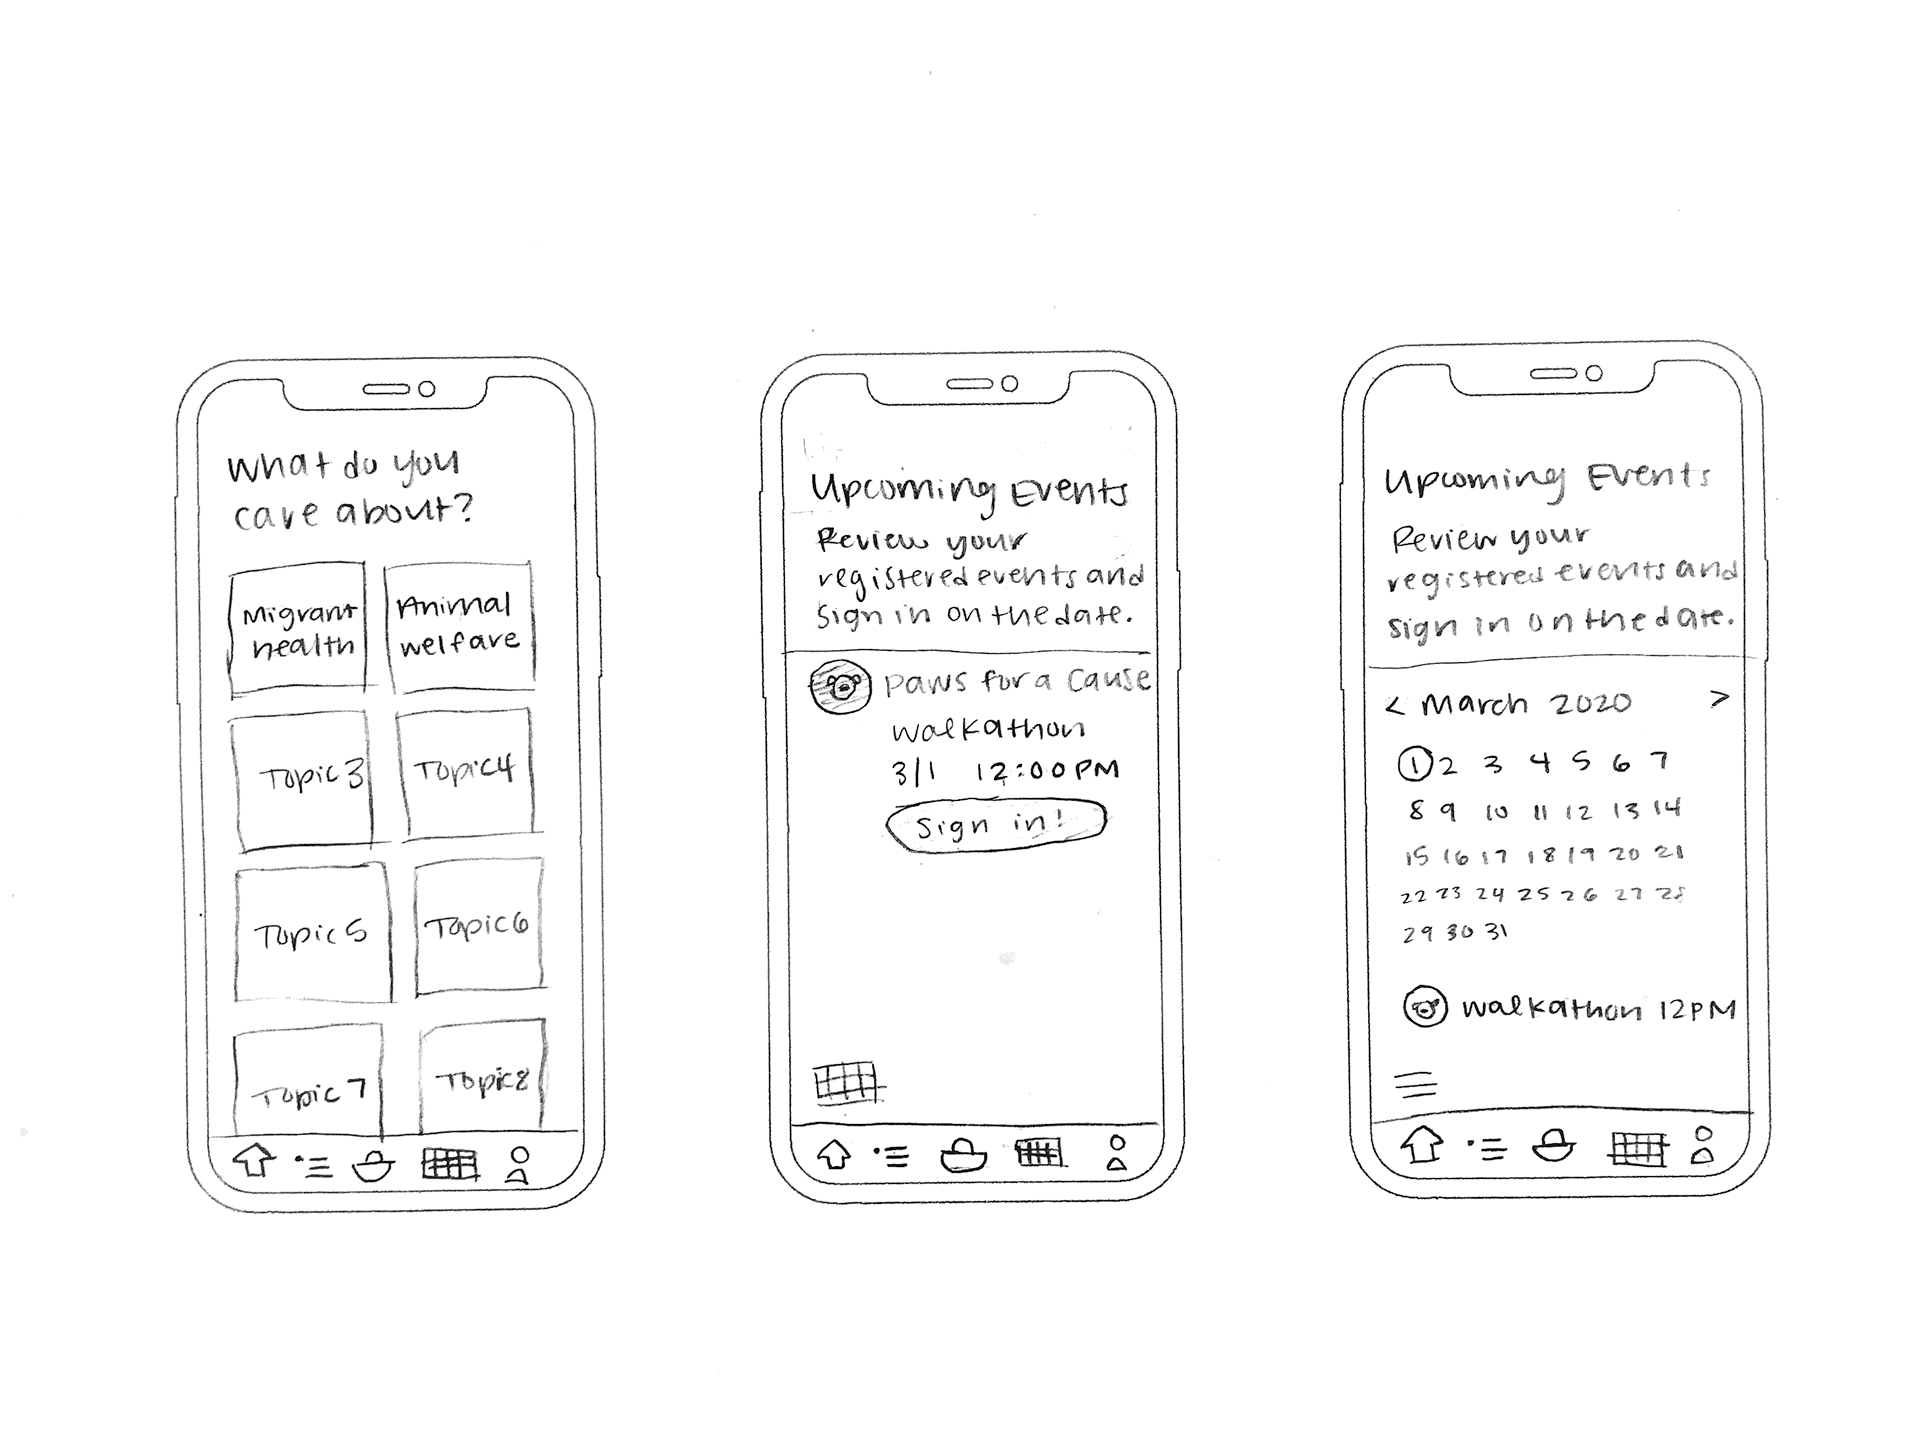 What do you
care about?
Migrant
health
Animal
welfare
Topic 3
Topic 4
Topic 5
Topic 6
Topic 7
Topic 8
Upcoming Events
Review your
registered events and
sign in on the date.
Paws for a Cause
walkathon
3/1 12:00PM
Sign in!
Upcoming Events
Review your
registered events and
sign in on the date.
< March 2020 >
1 2 3 4 5 6 7
8 9 10 11 12 13 14
15 16 17 18 19 20 21
22 23 24 25 26 27 28
29 30 31
walkathon 12PM